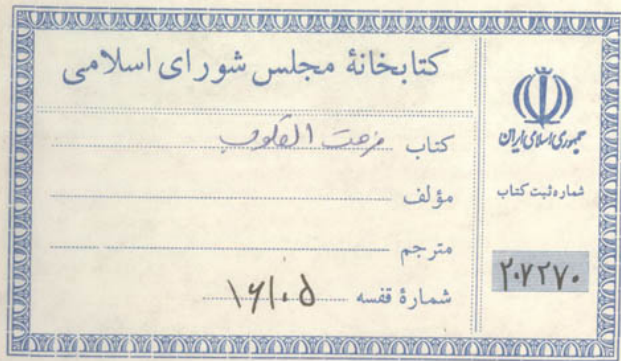 کتابخانهٔ مجلس شورای اسلامی
کتاب القلوب
مؤلف
مترجم
شمارهٔ قفسه ۱۶۱۰۵
جمهوری اسلامی ایران
شماره ثبت کتاب
۲۰۷۲۷۰